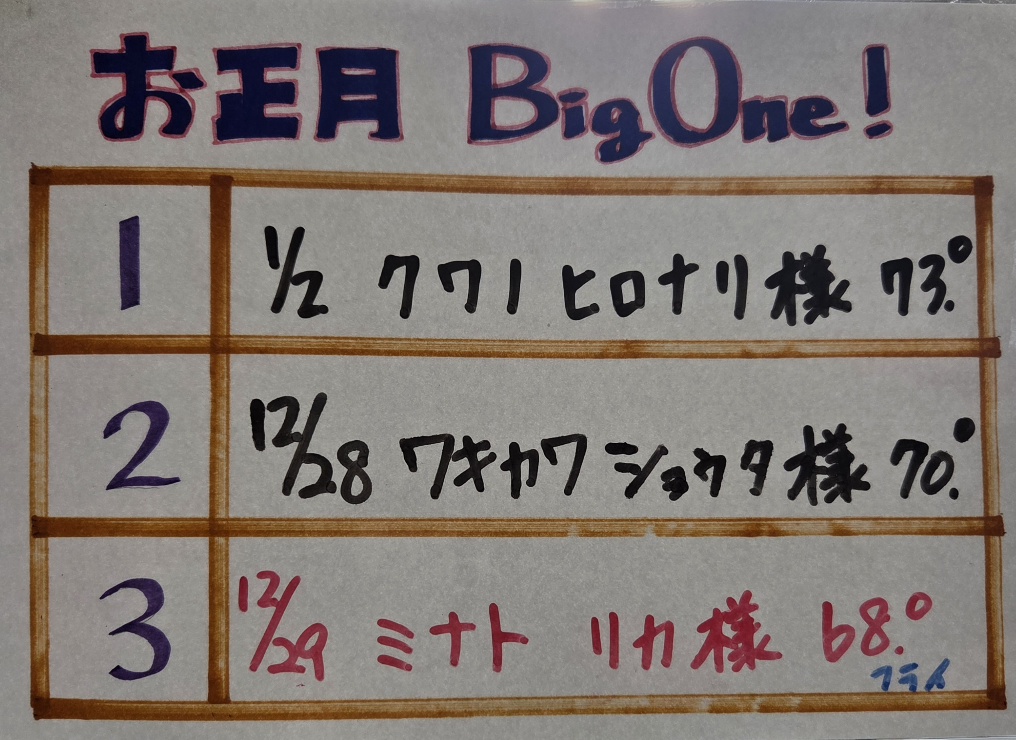 お正月 BigOne!
1 1/2 クワノ ヒロナリ様 73.0
2 12/28 ワキカワ ショウタ様 70.0
3 12/29 ミナト リカ様 68.0
フライ